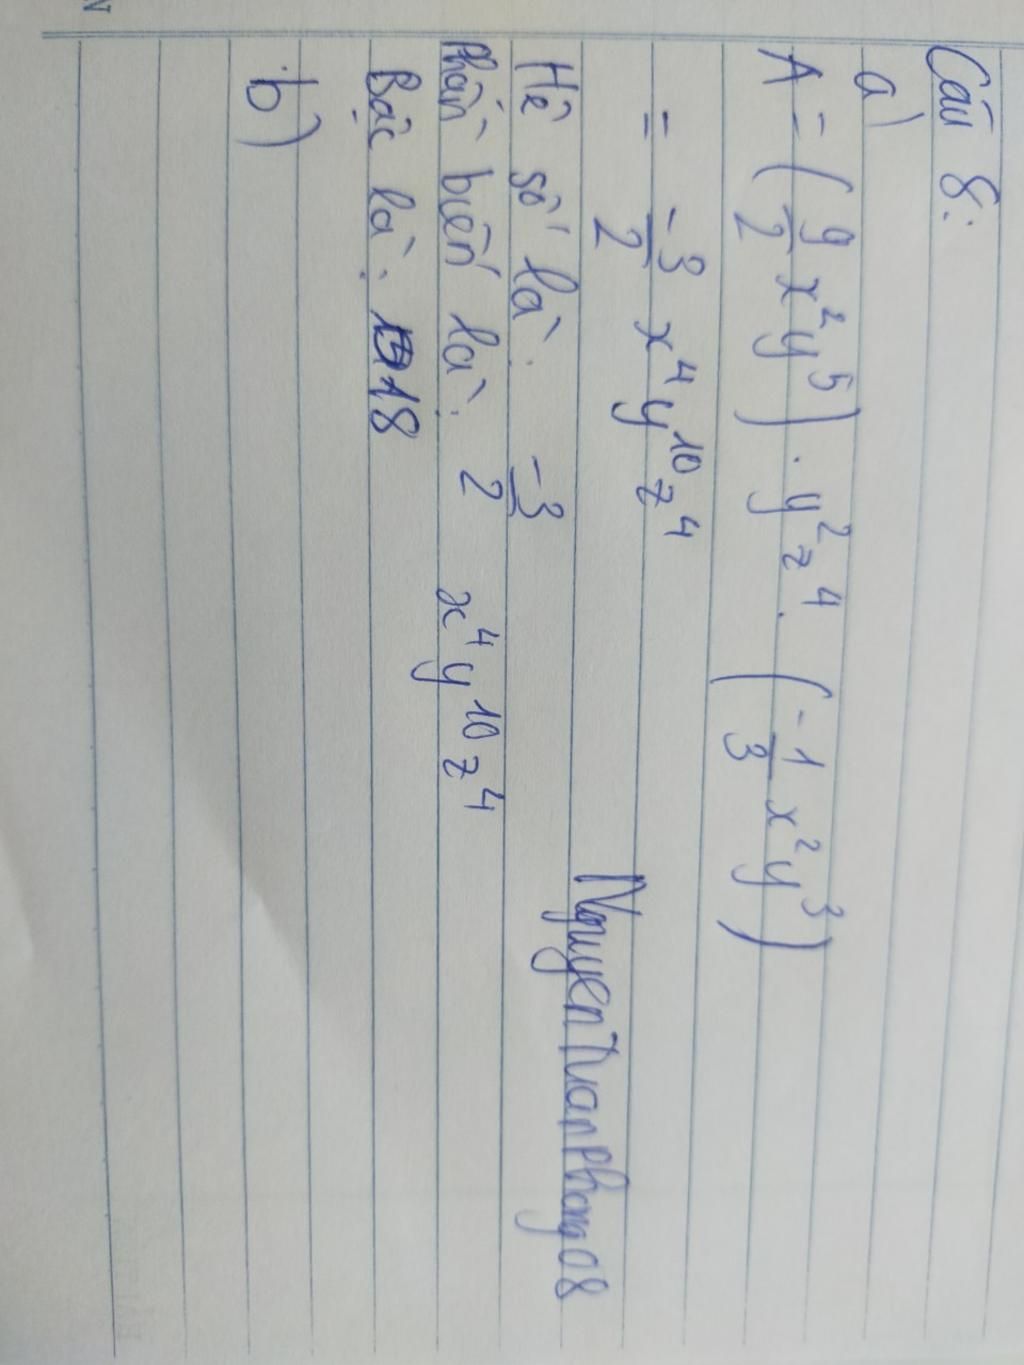 Câu 8:
a)
A = (9/2 x²y⁵) . y²z⁴ . (-1/3 x²y³)
= -3/2 x⁴y¹⁰z⁴
Hệ số là: -3/2
Phần biến là: x⁴y¹⁰z⁴
Bậc là: 18
b)
NguyenTuanPhong08